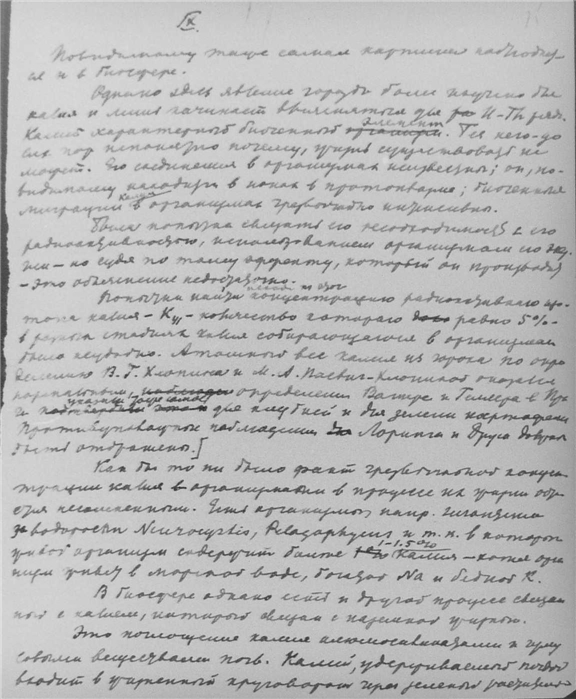 IX.
Повидимому такую самая картина наблюдает-
ся и в биосфере.
Однако здесь явление гораздо более изучено для
калия и лишь начинает выясняться для U-Th ряда.
Калий характерный биогенный элемент. Без него до
сих пор непонятно почему, жизнь существовать не
может. Его соединения в организмах неизвестны; он, по-
видимому находится в ионах в протоплазме; биогенная
миграция калия в организмах чрезвычайно интенсивна.
Была попытка связать его необходимость с его
радиоактивностью, использованием организмом его
- но судя по тому эффекту, который он производит
- это объяснение недостаточно.
Попытки найти концентрацию радиоактивного изо-
топа калия - K41 - количество которого равно 5% -
в разных стадиях калия собирающегося в организмах
было неудачно. Атомный вес калия из по опре-
делению В. Г. Хлопина и М. А. Пасвик-Хлопиной оказался
нормальным, определения
и для клубней и для зелени картофеля
Противуположные наблюдения Лоринга и Друса должны
быть отброшены.]
Как бы то ни было факт чрезвычайной концен-
трации калия в организмах в процессе их жизни оста-
ется несомненным. Есть организмы напр. гигантские
водоросли Neurocystis, Pelagophycus и т. п. в которых
живой организм содержит больше 1-1.5% калия - хотя орга-
низм живет в морской воде, богатой Na и бедной K.
В биосфере однако есть и другой процесс связан-
ный с калием, который связан с наземной жизнью.
Это поглощение калия алюмосиликатами и гуму-
совыми веществами почв. Калий, удерживаемый почвой
входит в жизненный круговорот через зеленые растения